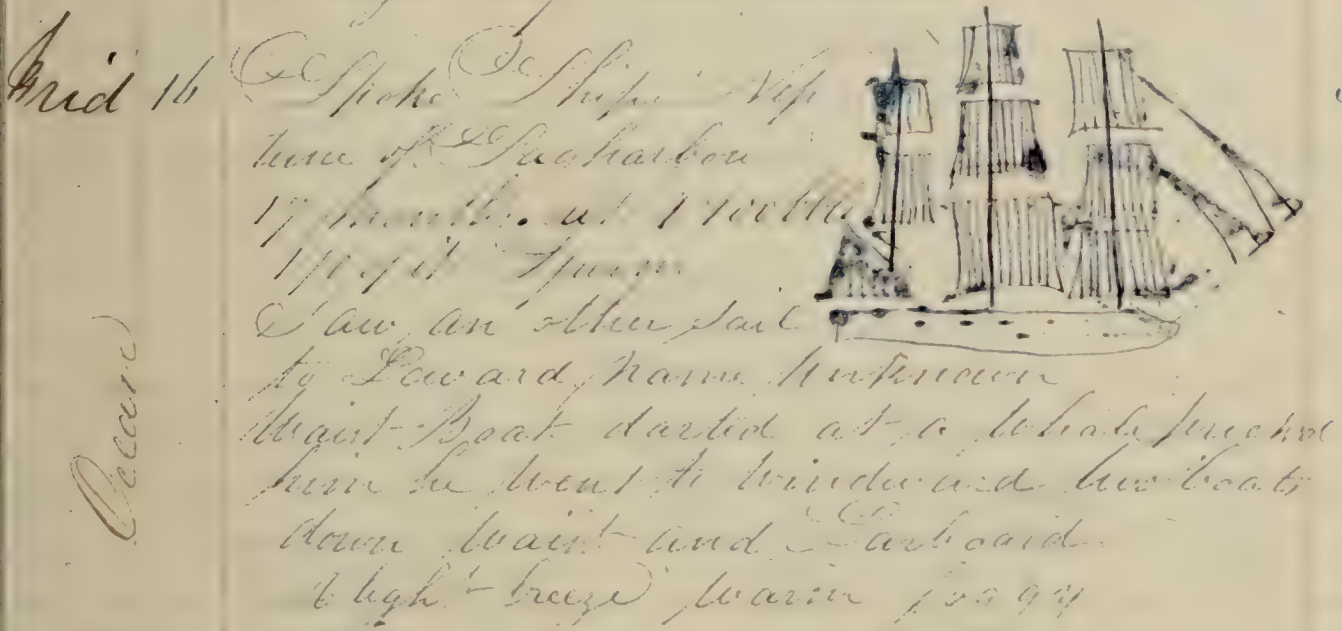 Frid 16 Spoke Ship Nep
tune of Sagharbou
17 months out 1700 bbls
Sperm
Saw an other sail
to Laward name unknown
Waist Boat darted at a Whale pricked
him he went to windward two boats
down waist and Larboard
light breeze warm foggy
Ocean